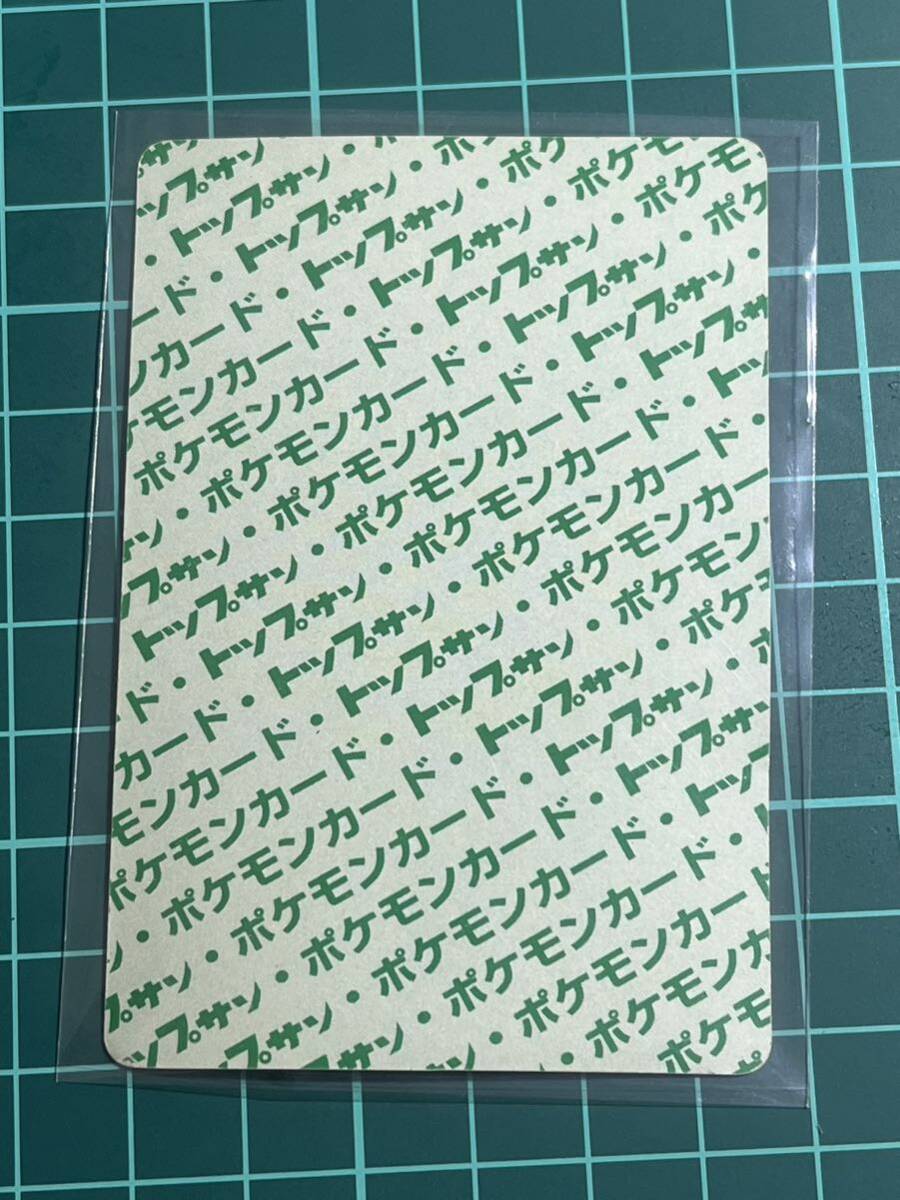 サン
ップサン・
・トップサン・ポ
ード・トップサン・ポケ
ンカード・トップサン・ポケモ
ケモンカード・トップサン・ポケモン
ポケモンカード・トップサン・ポケ
・ポケモンカード・トップサン・
ン・ポケモンカード・トップサン
ップサン・ポケモンカード・トッ
トップサン・ポケモンカード・
ド・トップサン・ポケモンカー
カード・トップサン・ポケモン
モンカード・トップサン・ポケ
ポケモンカード・トップサン・ポ
・ポケモンカード・トップサン
ン・ポケモンカード・トッ
ップサン・ポケモンカード・ト
プサン・ポケモンカード
サン・ポケモンカ
・ポケモ
ポ